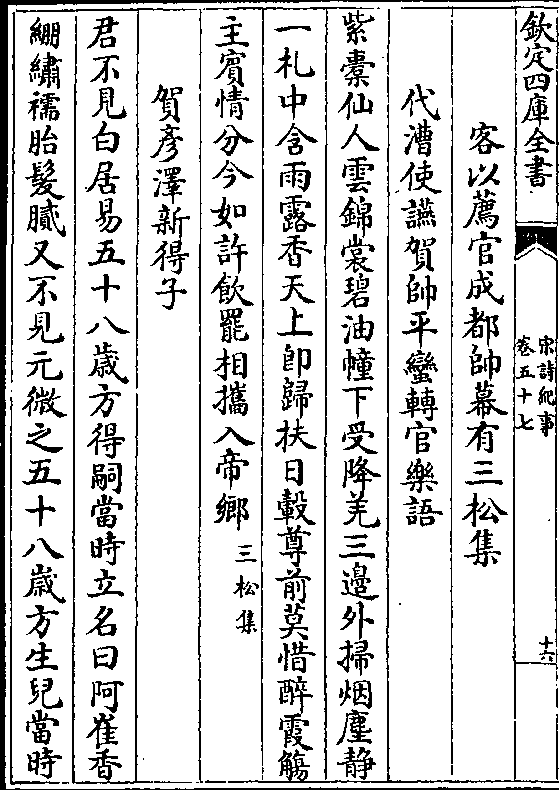 欽定四庫全書
宋詩紀事
卷五十七
十六
客以薦官成都帥幕有三松集
代漕使讌賀帥平蠻轉官樂語
紫橐仙人雲錦裳碧油幢下受降羌三邉外掃烟塵静
一札中含雨露香天上即歸扶日轂尊前莫惜醉霞觴
主賓情分今如許飲罷相攜入帝鄉三松集
賀彥澤新得子
君不見白居易五十八歳方得嗣當時立名曰阿崔香
繃繡襦胎髮膩又不見元微之五十八歳方生兒當時